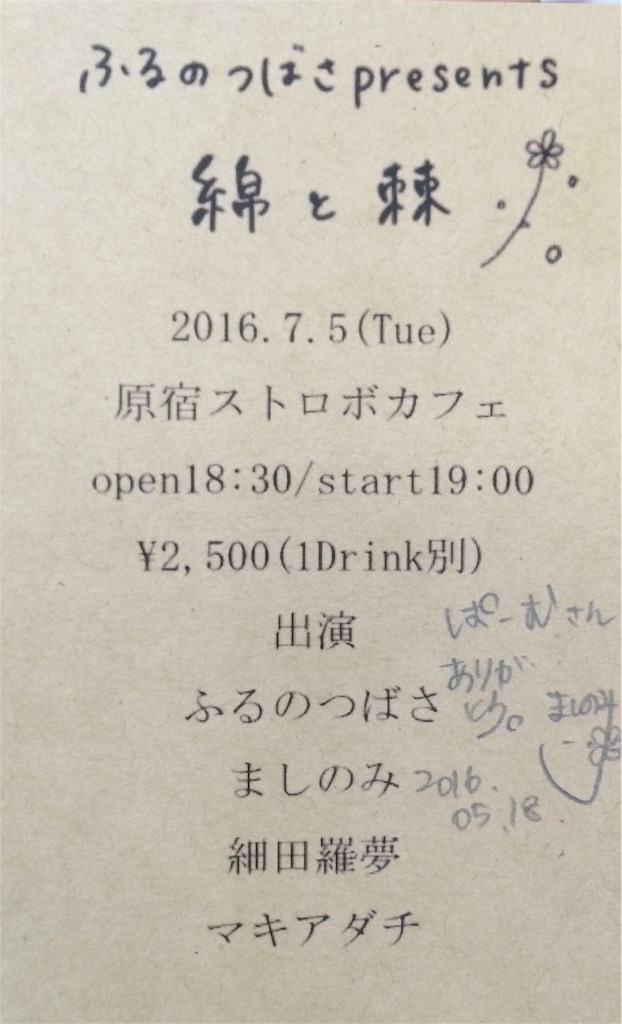 ふるのつばさpresents
綿と棘
2016.7.5(Tue)
原宿ストロボカフェ
open18:30/start19:00
¥2,500(1Drink別)
出演
ふるのつばさ
ましのみ
細田羅夢
マキアダチ
ぱーむさん
ありが
とう。
ましのみ
2016.
05.18